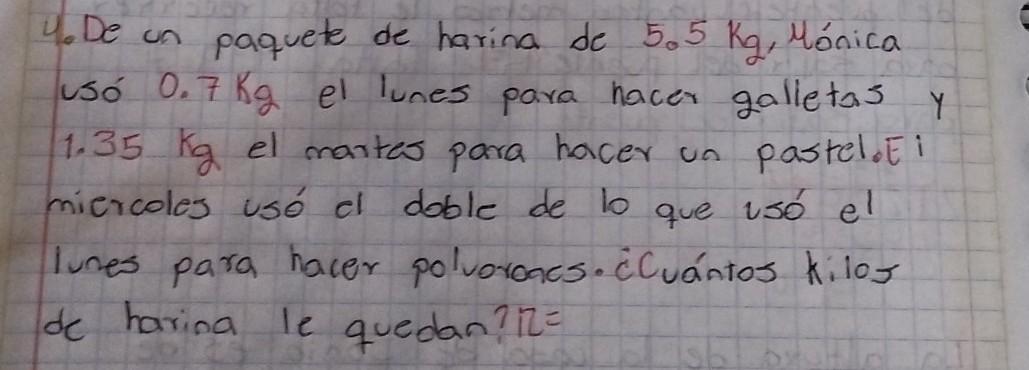 4. De un paquete de harina de 5.5 Kg, Mónica
usó 0.7 Kg el lunes para hacer galletas y
1.35 Kg el martes para hacer un pastel. El
miercoles usó el doble de lo que usó el
lunes para hacer polvorones. ¿Cuántos kilos
de harina le quedan? R=